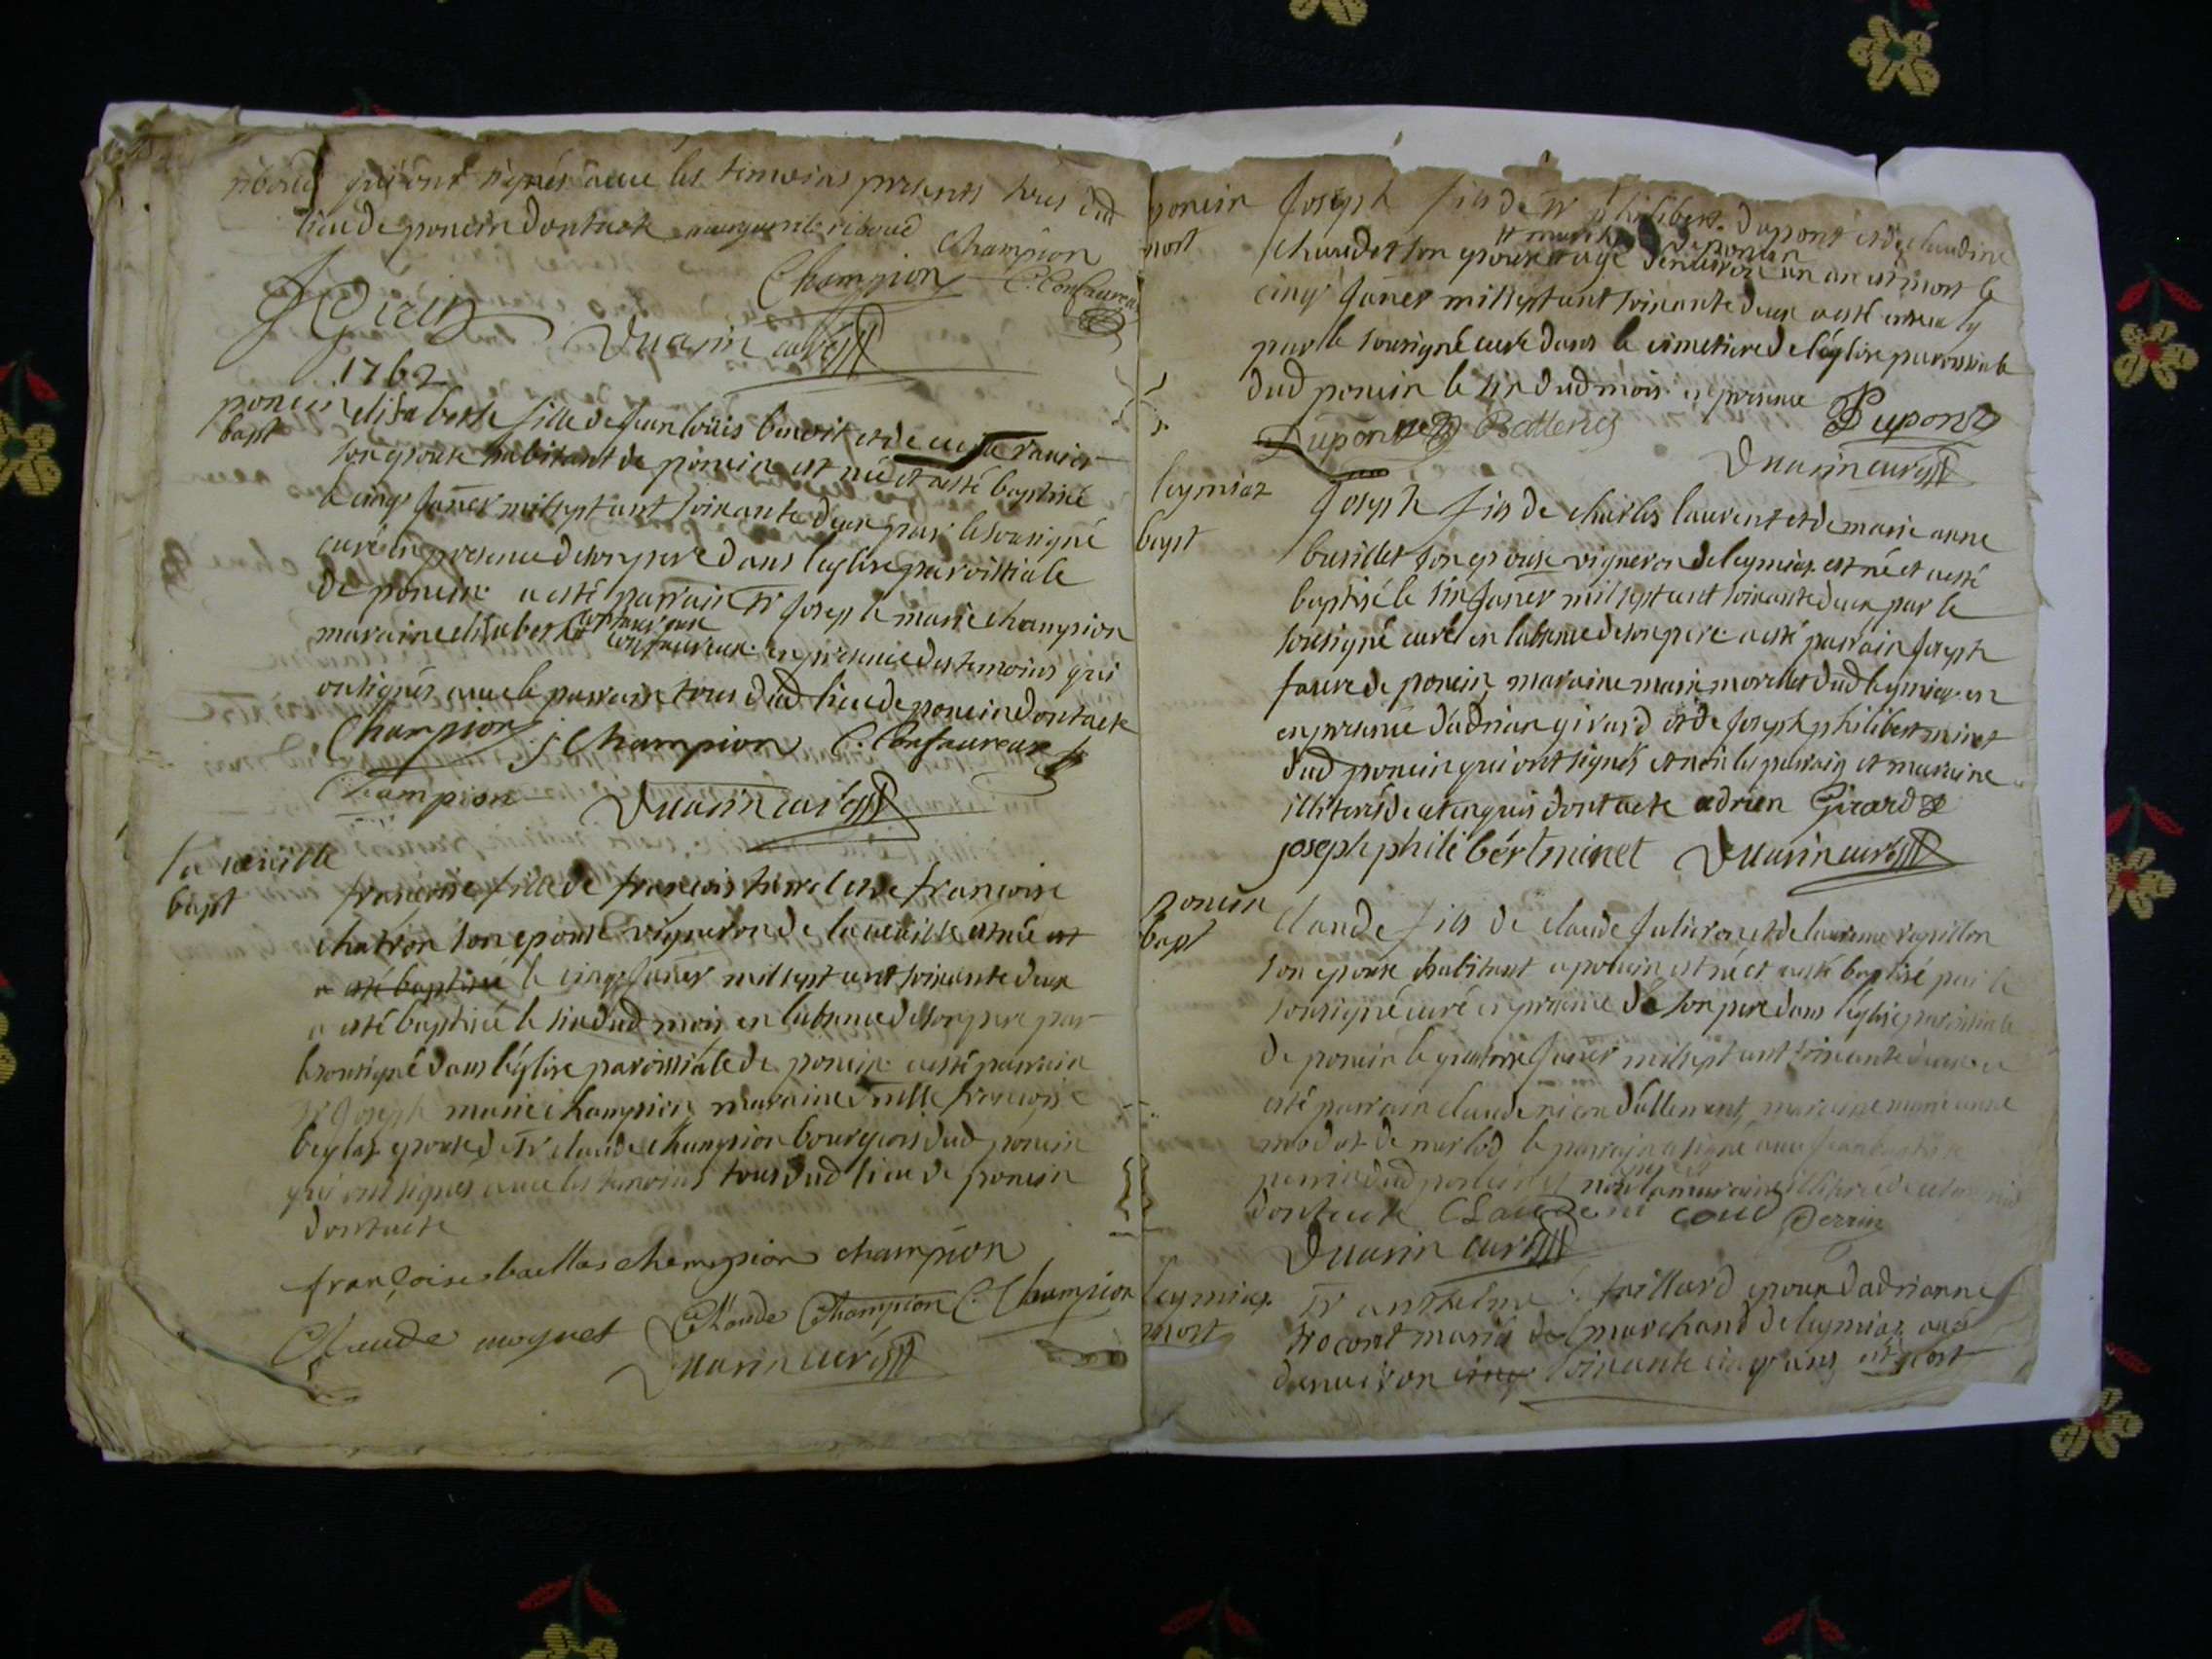 riboud qui ont signés avec les temoins presents tous dud
lieu de poncin dont acte marguerite riboud
Champion
Champion C. Confavreux
Duarin curé
1762
poncin
bapt
elisabeth fille de Jean louis benoit et de
son epouse habitant de poncin est née et a esté baptisée
le cinq janer mil sept cent soixante deux par le sousigné
curé en presence de son pere dans leglise paroissiale
de poncin a esté parrain sr Joseph marie champion
maraine elisabeth confavreux en presence des temoins qui
on signés avec le parrain tous dud lieu de poncin dont acte
Champion J Champion C. Confavreux
Champion Duarin curé
bapt
francoise fille de francois et de francoise
chatron son epouse vigneron de est née et
a esté baptisée le cinq janer mil sept cent soixante deux
a esté baptisée le six dud mois en labsence de son pere par
le sousigné dans leglise paroissiale de poncin a esté parrain
sr Joseph marie champion maraine dlle francoise
epouse de sr claude champion bourgeois dud poncin
qui ont signés avec les temoins tous dud lieu de poncin
dont acte
françoise baillas champion champion
Claude moynet Claude Champion C. Champion
Duarin curé
poncin
mort
Joseph fils de sr philibert dupont et de claudine
son epouse agé denviron un an est mort le
cinq janer mil sept cent soixante deux a esté
par le sousigné curé dans le cimetiere de leglise paroissiale
dud poncin le six dud mois en presence Dupont
Dupont
Duarin curé
leymiaz
bapt
Joseph fils de charles laurent et de marie anne
busillet son epouse vigneron de leymiaz est né et a esté
baptisé le six janer mil sept cent soixante deux par le
sousigné curé en labsence de son pere a esté parrain Joseph
favre de poncin maraine marie morellet dud leymiaz en
en presence dadrian girard et de Joseph philibert minet
dud poncin qui ont signés et non les parrain et maraine
illiterés de ce enquis dont acte adrien Girard
joseph philibért minet Duarin curé
poncin
bapt
Claude fils de claude Julieron et de papillon
son epouse habitant a poncin est né et a esté baptisé par le
sousigné curé en presence de son pere dans leglise paroissiale
de poncin le quatorze janer mil sept cent soixante deux a
esté parrain claude nicoud dallement, maraine marie anne
de merlod le parrain a signé avec Jean baptiste
perrin dud poncin et non la maraine illiterée de ce enquis
dont acte Claude ni coud Perrin
Duarin curé
leymiaz
mort
sr anthelme taillard epoux dadrianne
marchand de leymiaz agé
denviron cinq soixante cinq ans est mort